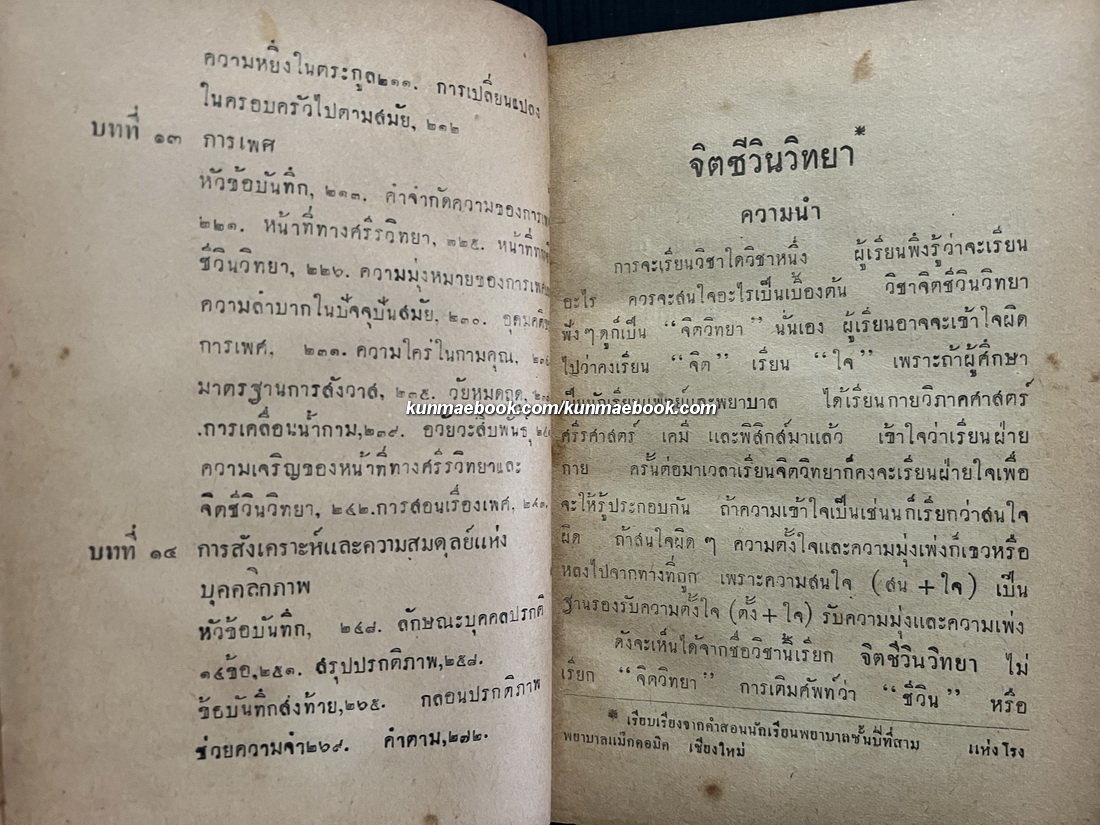 ความหยิ่งในตระกูล๒๑๑. การเปลี่ยนแปลง
ในครอบครัวไปตามสมัย, ๒๑๒
บทที่ ๑๓ การเพศ
หัวข้อบันทึก, ๒๑๓. คำจำกัดความของการเพศ
๒๒๑. หน้าที่ทางศรีรวิทยา, ๒๒๕. หน้าที่ทาง
ชีวินวิทยา, ๒๒๖. ความมุ่งหมายของการเพศ
ความลำบากในปัจจุบันสมัย, ๒๓๐. อุดมคติ
การเพศ, ๒๓๑. ความใคร่ในกามคุณ,
มาตรฐานการสังวาส, ๒๓๕. วัยหมดฤดู,
.การเคลื่อนน้ำกาม,๒๓๙. อวัยวะสืบพันธุ์
ความเจริญของหน้าที่ทางศรีรวิทยาและ
จิตชีวินวิทยา, ๒๔๒.การสอนเรื่องเพศ, ๒๔๑.
บทที่ ๑๔ การสังเคราะห์และความสมดุลย์แห่ง
บุคคลิกภาพ
หัวข้อบันทึก, ๒๔๘. ลักษณะบุคคลปรกติ
๑๔ข้อ,๒๕๑. สรุปปรกติภาพ,๒๕๘.
ข้อบันทึกส่งท้าย,๒๖๕. กลอนปรกติภาพ
ช่วยความจำ๒๖๙. คำถาม,๒๗๒.
จิตชีวินวิทยา*
ความนำ
การจะเรียนวิชาใดวิชาหนึ่ง ผู้เรียนพึงรู้ว่าจะเรียน
อะไร ควรจะสนใจอะไรเป็นเบื้องต้น วิชาจิตชีวินวิทยา
ฟังๆดูก็เป็น “จิตวิทยา” นั่นเอง ผู้เรียนอาจจะเข้าใจผิด
ไปว่าคงเรียน “จิต” เรียน “ใจ” เพราะถ้าผู้ศึกษา
kunmaebook.com/kunmaebook.com
เป็นนักเรียนแพทย์และพยาบาล ได้เรียนกายวิภาคศาสตร์
ศรีรศาสตร์ เคมี และฟิสิกส์มาแล้ว เข้าใจว่าเรียนฝ่าย
กาย ครั้นต่อมาเวลาเรียนจิตวิทยาก็คงจะเรียนฝ่ายใจเพื่อ
จะให้รู้ประกอบกัน ถ้าความเข้าใจเป็นเช่นนี้ก็เรียกว่าสนใจ
ผิด ถ้าสนใจผิดๆ ความตั้งใจและความมุ่งเพ่งก็เขวหรือ
หลงไปจากทางที่ถูก เพราะความสนใจ (สน + ใจ) เป็น
ฐานรองรับความตั้งใจ (ตั้ง + ใจ) รับความมุ่งและความเพ่ง
ดังจะเห็นได้จากชื่อวิชานี้เรียก จิตชีวินวิทยา ไม่
เรียก “จิตวิทยา” การเติมศัพท์ว่า “ชีวิน” หรือ
* เรียบเรียงจากคำสอนนักเรียนพยาบาลชั้นปีที่สาม แห่งโรง
พยาบาลแม็คคอมิค เชียงใหม่